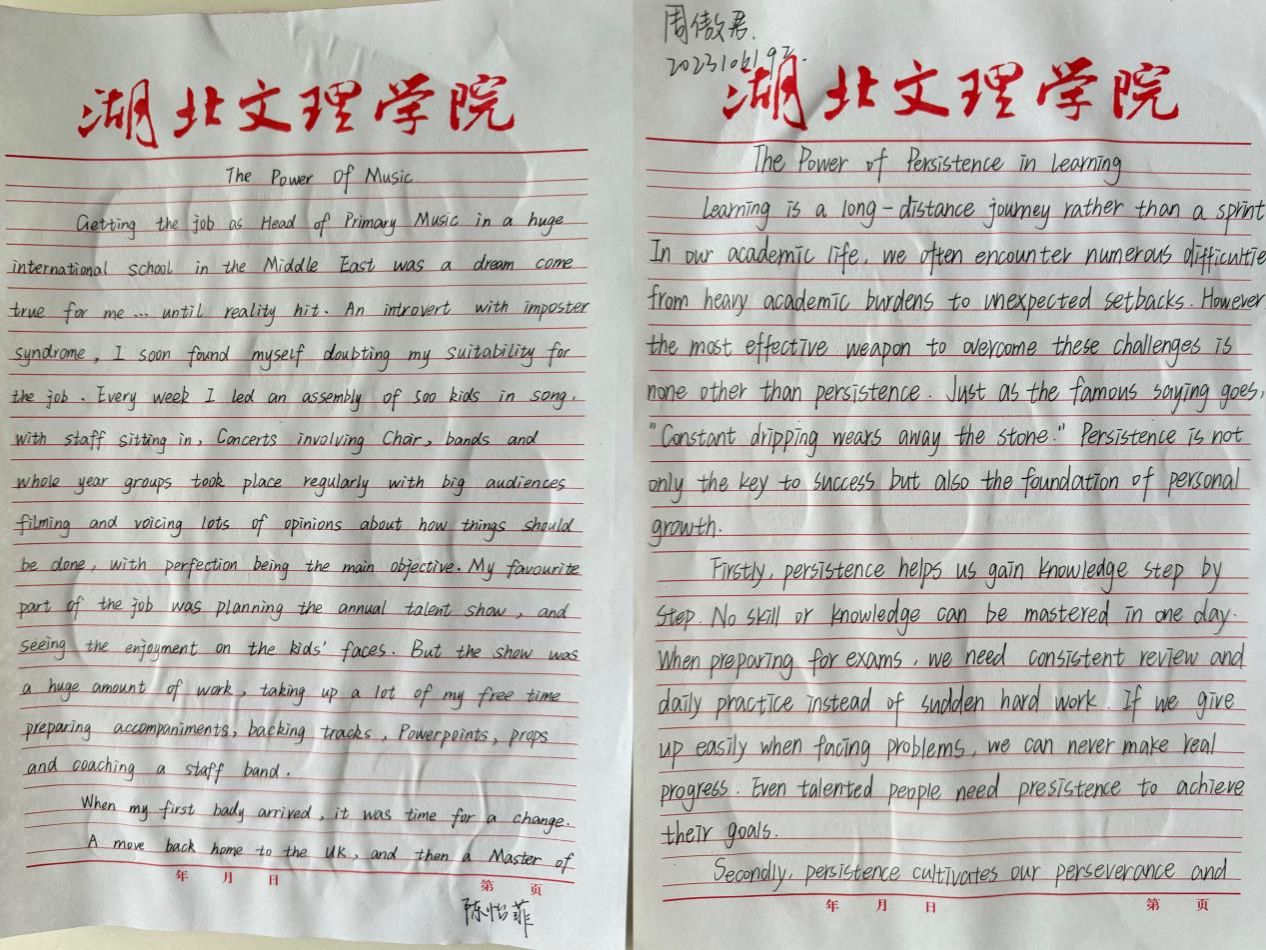 湖北文理学院
The Power Of Music
Getting the job as Head of Primary Music in a huge
international school in the Middle East was a dream come
true for me... until reality hit. An introvert with imposter
syndrome, I soon found myself doubting my suitability for
the job. Every week I led an assembly of 500 kids in song,
with staff sitting in, Concerts involving Choir, bands and
whole year groups took place regularly with big audiences
filming and voicing lots of opinions about how things should
be done, with perfection being the main objective. My favourite
part of the job was planning the annual talent show, and
seeing the enjoyment on the kids' faces. But the show was
a huge amount of work, taking up a lot of my free time
preparing accompaniments, backing tracks, Powerpoints, props
and coaching a staff band.
When my first bady arrived, it was time for a change.
A move back home to the UK, and then a Master of
年 月 日
第 页
陈怡菲
周傲君.
湖北文理学院
The Power of Persistence in Learning
Learning is a long-distance journey rather than a sprint
In our academic life, we often encounter numerous difficultie
from heavy academic burdens to unexpected setbacks. However
the most effective weapon to overcome these challenges is
none other than persistence. Just as the famous saying goes,
"Constant dripping wears away the stone." Persistence is not
only the key to success but also the foundation of personal
growth.
Firstly, persistence helps us gain knowledge step by
step. No skill or knowledge can be mastered in one day.
When preparing for exams, we need consistent review and
daily practice instead of sudden hard work. If we give
up easily when facing problems, we can never make real
progress. Even talented people need presistence to achieve
their goals.
Secondly, persistence cultivates our perseverance and
年 月 日
第 页